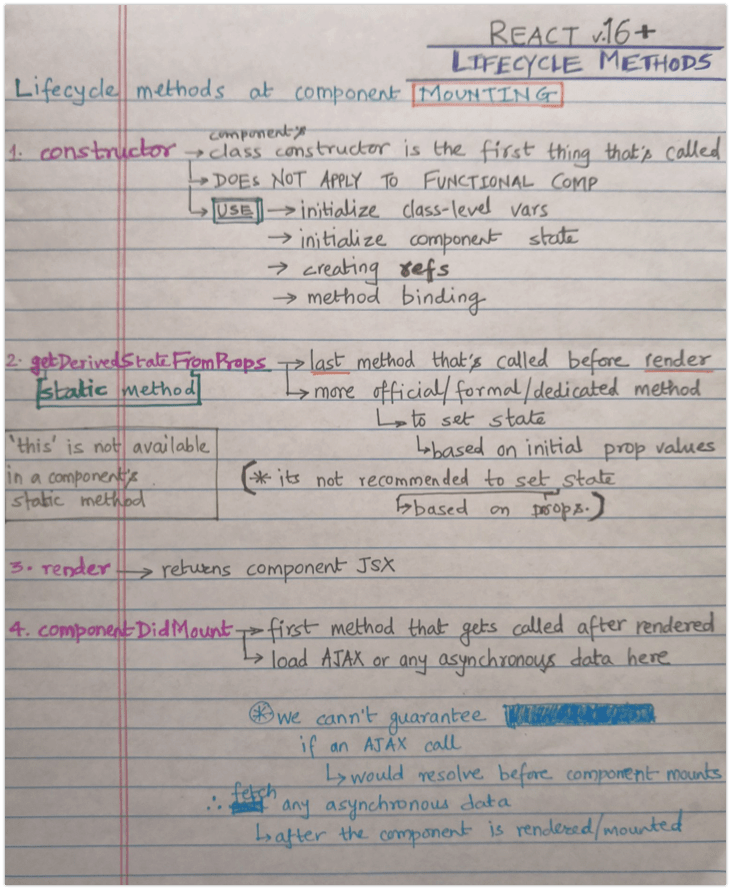 REACT v.16+
LIFECYCLE METHODS
Lifecycle methods at component MOUNTING
component's
1. constructor → class constructor is the first thing that's called
↳ DOES NOT APPLY TO FUNCTIONAL COMP
↳ USE → initialize class-level vars
→ initialize component state
→ creating refs
→ method binding
2. getDerivedStateFromProps → last method that's called before render
static method ↳ more official/formal/dedicated method
↳ to set state
'this' is not available ↳ based on initial prop values
in a component's (* its not recommended to set state
static method ↳ based on props.)
3. render → returns component JSX
4. componentDidMount → first method that gets called after rendered
↳ load AJAX or any asynchronous data here
* we cann't guarantee
if an AJAX call
↳ would resolve before component mounts
∴ fetch any asynchronous data
↳ after the component is rendered/mounted